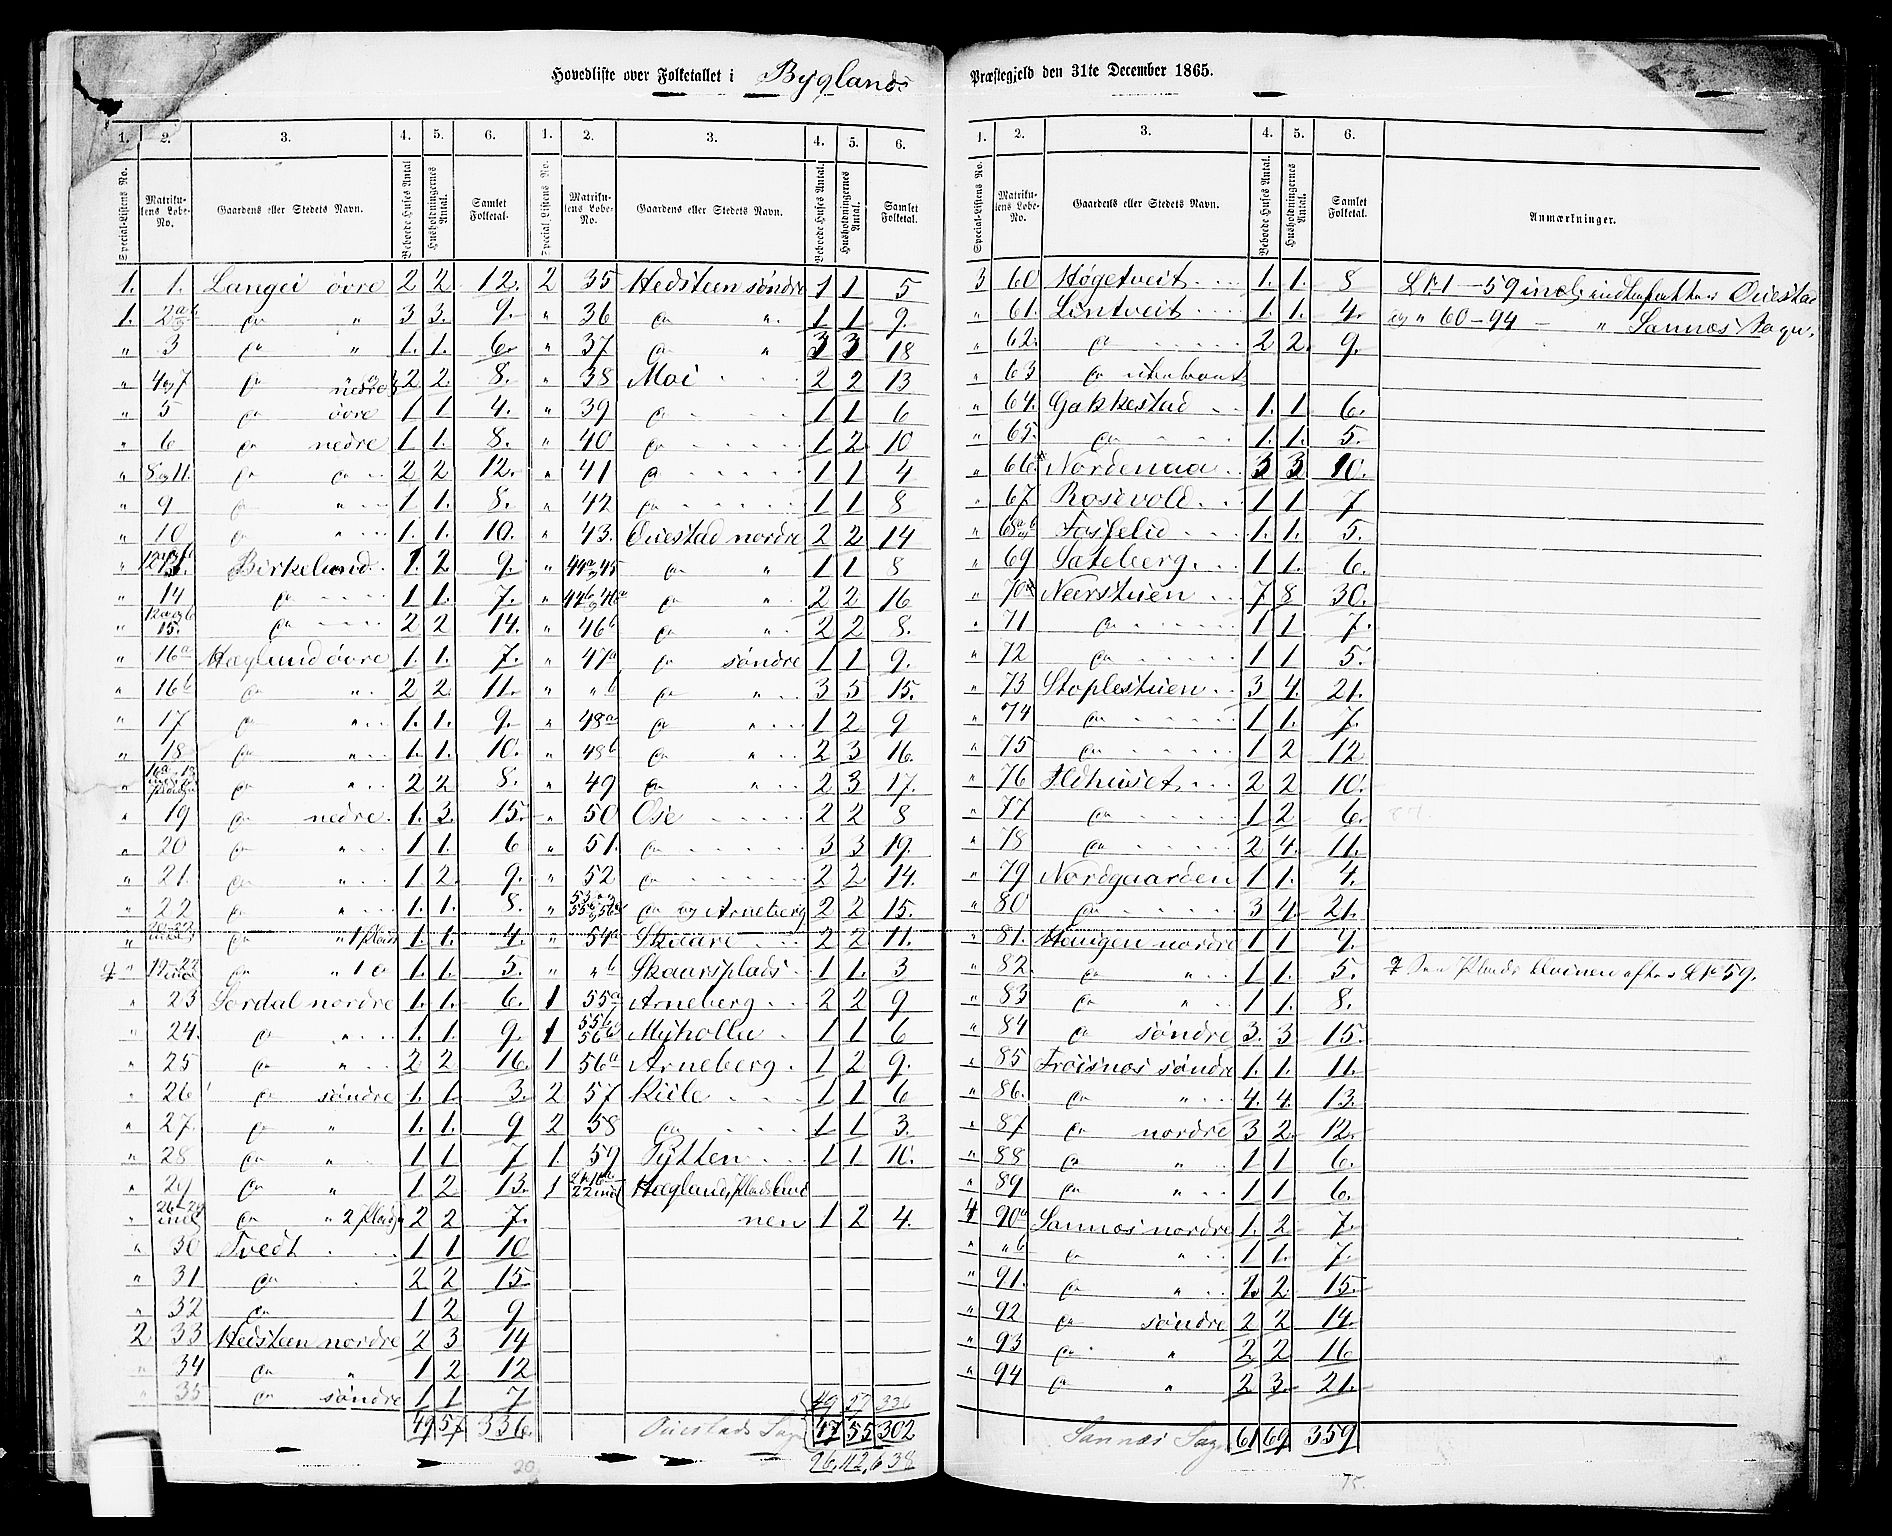 Hovedliste over Folketallet i Byglands Præstegjeld den 31te December 1865.
1. 2. 3. 4. 5. 6. 1. 2. 3. 4. 5. 6.
Special-Listens No. Matrikulens Løbe-No. Gaardens eller Stedets Navn. Beboede Huses Antal Husholdningernes Antal. Samlet Folketal. Special-Listens No. Matrikulens Løbe-No. Gaardens eller Stedets Navn. Beboede Huses Antal. Husholdningernes Antal. Samlet Folketal.
1. 1. Langei övre 2 2 12. 2 35 Hedsteen söndre 1 1 5
1. 2 a b do " 3 3. 9. " 36 do ". 1 1 9.
" 3 do " 1. 1. 6. " 37 do " 3 3 18
" 4 og 7 do nedre 2 2. 8. " 38 Moi 2 2 13
" 5 do övre 1 1 4. " 39 do 1 1 6
" 6 do nedre 1 1. 8. " 40 do 1 2 10
" 8 og 11. do do 2 2 12. " 41 do 1 1 4
" 9 do " 1 1. 8. " 42 do 1 1 8
" 10 do " 1. 1. 10. " 43. Ouestad nordre 2 2 14
" Birkelund. 1. 2 9. " 44a og 45 do " 1 1 8
" 14 do 1 1. 7. " 44b og 46a do " 2 2 16
" 12a og b 15. do 2 2 14. " 46b do ". 2 2 8.
" 16a Haeglund övre 1. 1. 7. " 47a do söndre 1 1 9.
" 16b do ". 2 2. 11. " " b do ". 3 5 15.
" 17 do " 1. 1. 9. " 48a do " 1 2 9
" 18 do " 1. 1. 10. " 48b do " 2 3 16.
" do " 2 2 8. " 49 do " 2 3 17.
" 19 do nedre. 1. 3. 15. " 50 Ose 2 2 8
" 20 do " 1 1. 6 " 51. do 3 3 19.
" 21. do " 1. 2. 9. " 52 do 2 2 14.
" 22 do " 1. 1. 8. " do og Arneberg 2 2 15.
" do " 1 plads 1. 1. 4. " 54a Skaare 2 2 11.
" 19-22 incl do " 1 do 1. 1. 5. " " b Skaarsplads 1 1. 3
" 23 Jordal nordre 1. 1. 6. 1 55a Arneberg 2 2 9
" 24. do " 1. 1 9. 1 55b 56b Myhollu 1 1 6
" 25 do " 2 2 16. 1 56a Arneberg. 1 2 9.
" 26 do söndre 1. 1. 3. 2 57 Kiile 1 1 6
" 27. do " 1. 1. 9 2 58 do 1 1 3.
" 28 do " 1 1 7 1. 59 Pytten 1 1 10.
" 29 do " 1 2 13. 1 22 incl Haeglands plads
" 26-29 incl do " 2 pladse 2 2 7. nen 1 2 4.
" 30 Tvedt 1 1 10
" 31 do 2 2 15
" 32 do 1 2 9
2 33 Hedsteen nordre 2 3 14
" 34 do " 1 2 12
" 35 do söndre 1 1 7 49 57 336
49 57 336. Ouestads Sogn 47 55 302
96, 112, 638
1. 2. 3. 4. 5. 6.
Special-Listens No. Matrikulens Løbe-No. Gaardens eller Stedets Navn. Beboede Huses Antal. Husholdningernes Antal. Samlet Folketal. Anmærkninger.
3 60 Högetveit 1. 1. 8 L: 1 - 59 incl. Ouestad
" 61. Lintveit 1. 1. 4. og " 60 - 94 - " Sannes Sogn.
" 62. do 2 2. 9.
" 63 do
" 64. Gakkestad 1. 1 6.
" 65. do 1. 1. 5.
" 66 Nordenaa 3 3 10.
" 67 Rosevold 1 1 7
" 68 a b Fosselid 1. 1. 5.
" 69 Sateberg. 1 1. 6.
" 70 Neerstuen 7 8 30.
" 71 do 1 1 7.
" 72 do 1 1 5.
" 73 Stoplestuen 3 4. 21.
" 74 do 1 1. 7.
" 75 do 1 2 12
" 76 Ildhuset 2 2 10.
" 77 do 1 2 6.
" 78 do 2 4. 11.
" 79 Nordgaarden 1 1. 4.
" 80 do 3 4. 21.
" 81. Heuigen nordre 1 1 4.
" 82. do " 1 1. 5.
" 83 do " 1 1. 8.
" 84 do söndre 3. 3 15.
" 85 Froisnes söndre 1. 1. 11.
" 86. do " 4. 4. 13.
" 87 do nordre 3 2. 12.
" 88 do " 1 1 6.
" 89 do " 1 1 6.
4 90a Sannes nordre 1. 2 7.
" " b do " 1 1. 7.
" 91. do " 1. 2. 15.
" 92 do söndre 2 2 14.
" 93 do " 2 2 16
" 94 do " 2 3. 21.
Sannes Sogn 61 69 359
20
75.